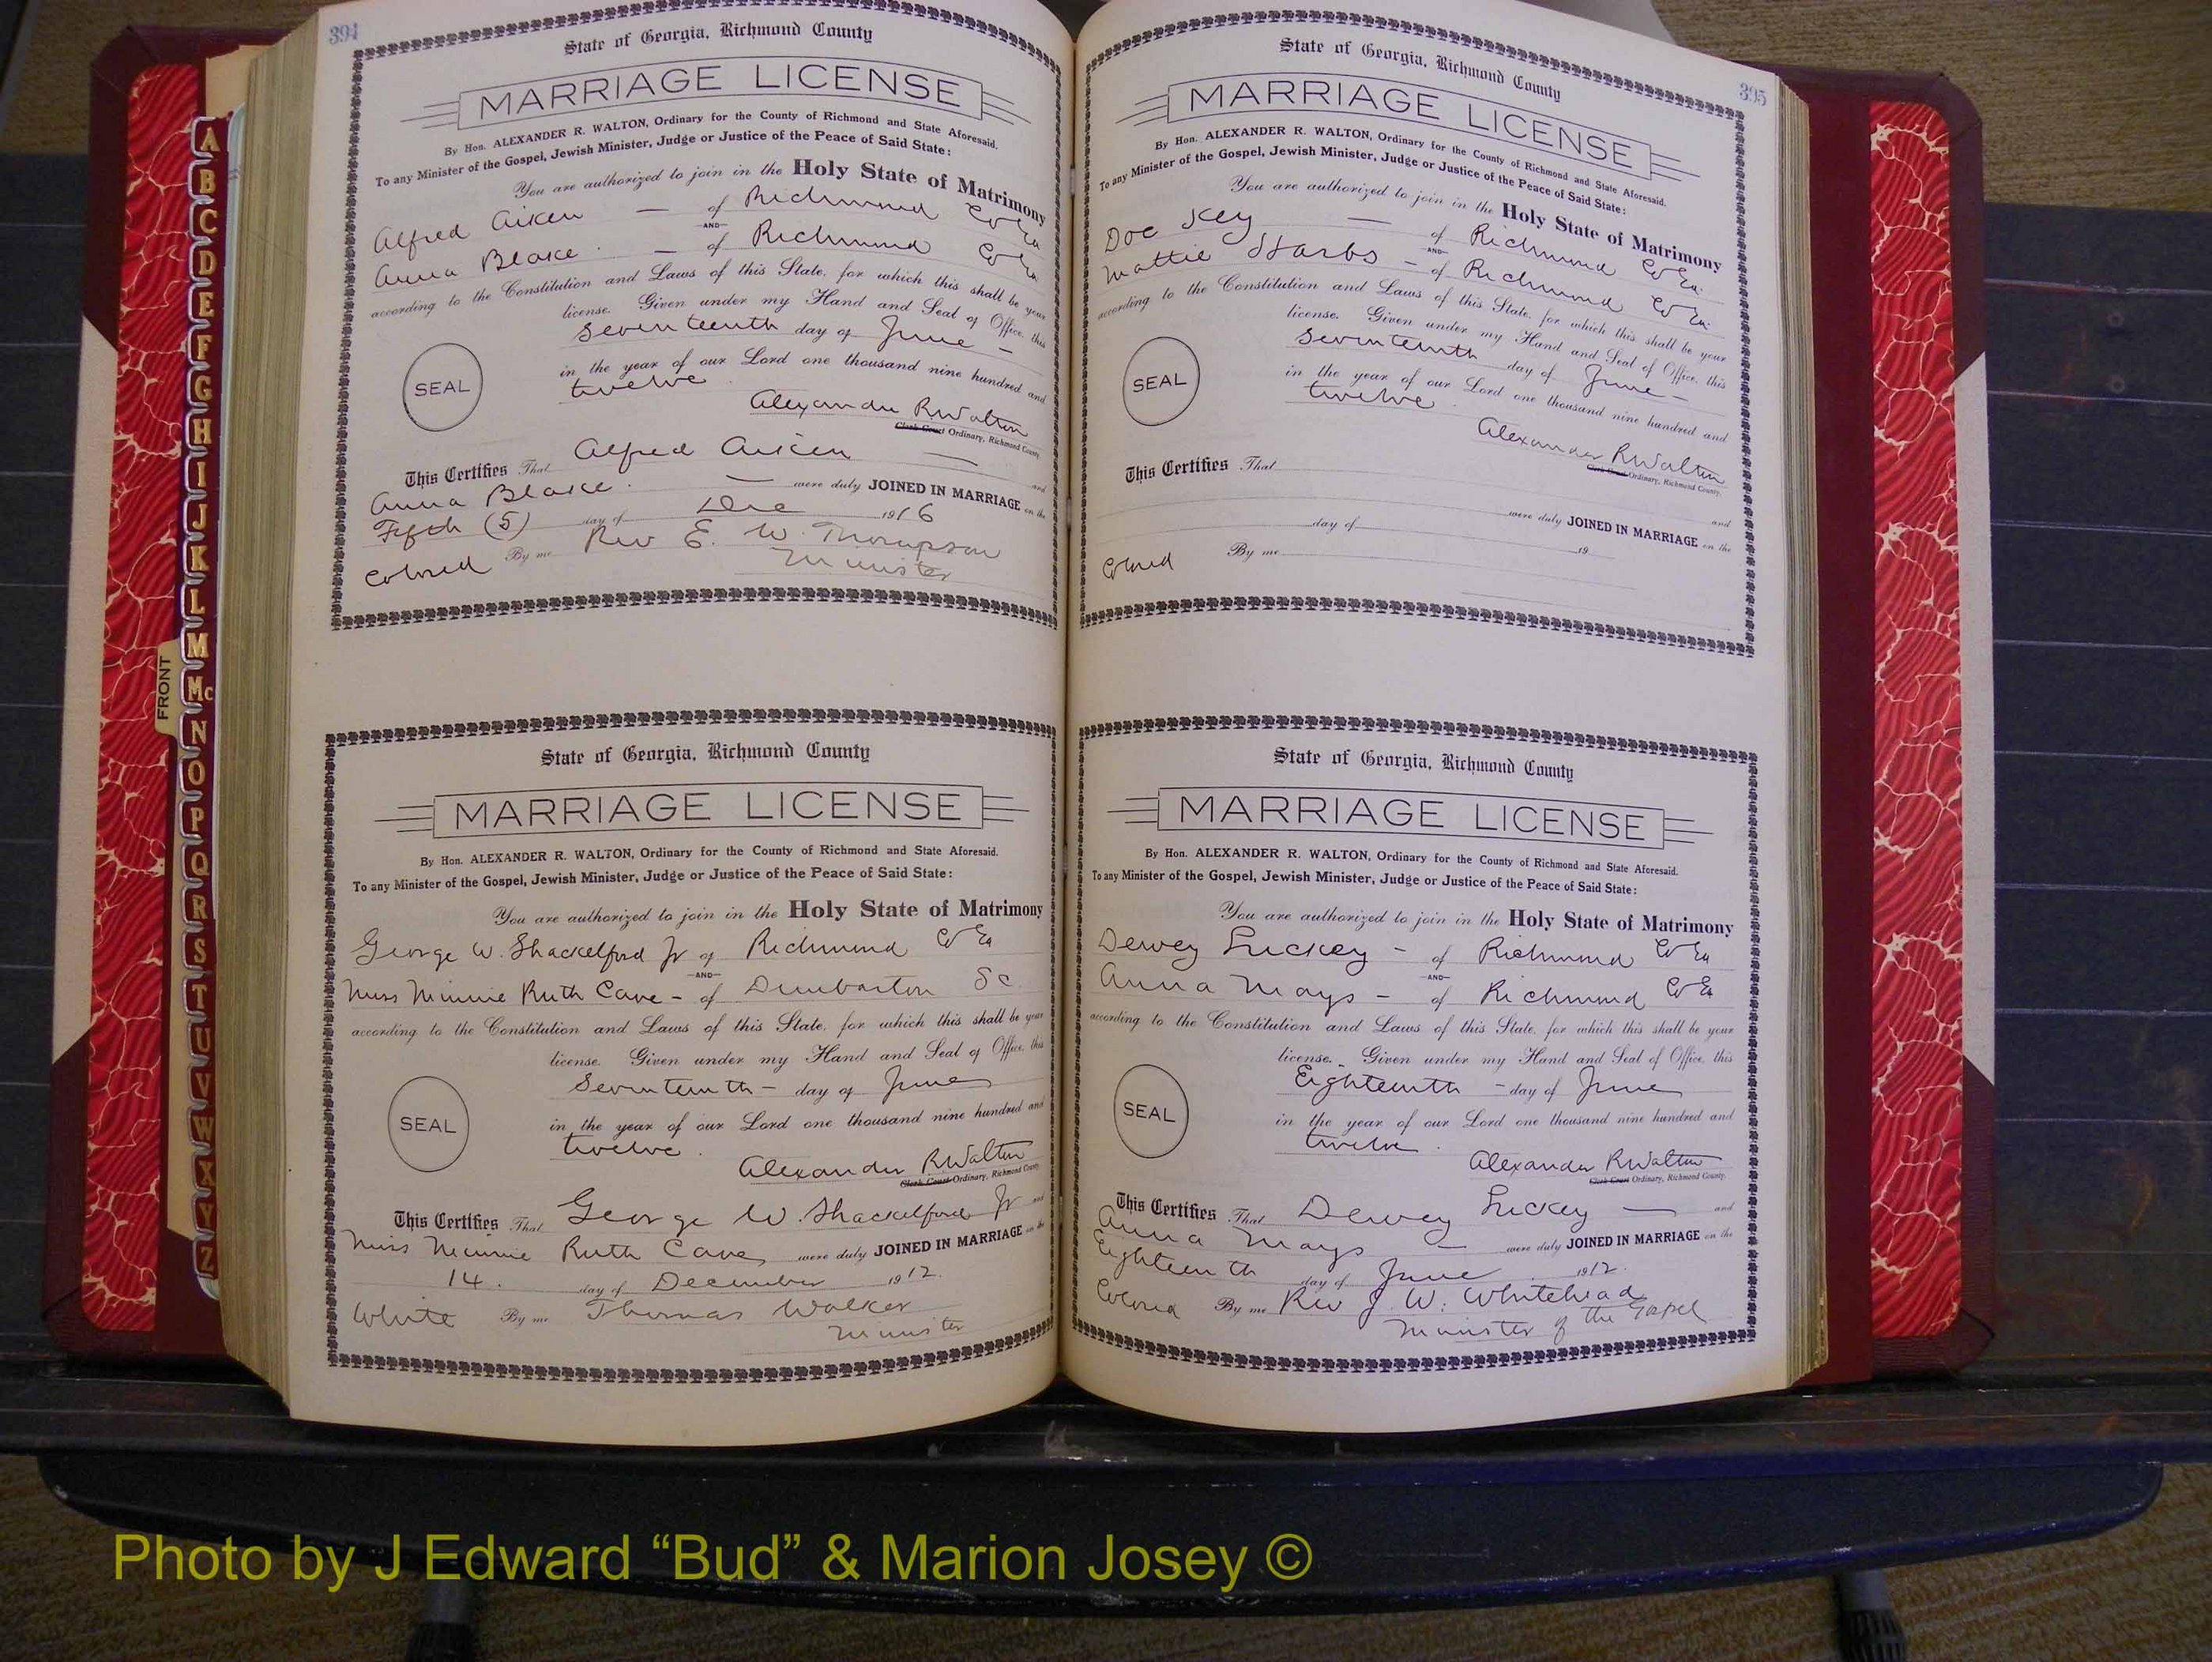 394
State of Georgia, Richmond County
MARRIAGE LICENSE
By Hon. ALEXANDER R. WALTON, Ordinary for the County of Richmond and State Aforesaid.
To any Minister of the Gospel, Jewish Minister, Judge or Justice of the Peace of Said State:
You are authorized to join in the Holy State of Matrimony
Alfred Aiken — of Richmond Co Ga
AND
Anna Blake. — of Richmond Co Ga
according to the Constitution and Laws of this State, for which this shall be your
license. Given under my Hand and Seal of Office, this
Seventeenth day of June —
in the year of our Lord one thousand nine hundred and
twelve.
SEAL
Alexander R Walton
Clerk Court Ordinary, Richmond County
This Certifies That Alfred Aiken — and
Anna Blake. — were duly JOINED IN MARRIAGE on the
Fifth (5) day of Dec 1916
Colored By me Rev E. W. Thompson
Minister
State of Georgia, Richmond County
MARRIAGE LICENSE
By Hon. ALEXANDER R. WALTON, Ordinary for the County of Richmond and State Aforesaid.
To any Minister of the Gospel, Jewish Minister, Judge or Justice of the Peace of Said State:
You are authorized to join in the Holy State of Matrimony
George W. Shackelford Jr of Richmond Co Ga
AND
Miss Minnie Ruth Cave - of Dunbarton SC
according to the Constitution and Laws of this State, for which this shall be your
license. Given under my Hand and Seal of Office, this
Seventeenth - day of June
in the year of our Lord one thousand nine hundred and
twelve.
SEAL
Alexander R Walton
Clerk Court Ordinary, Richmond County
This Certifies That George W. Shackelford Jr and
Miss Minnie Ruth Cave were duly JOINED IN MARRIAGE on the
14. day of December 1912.
White By me Thomas Walker
Minister
395
State of Georgia, Richmond County
MARRIAGE LICENSE
By Hon. ALEXANDER R. WALTON, Ordinary for the County of Richmond and State Aforesaid.
To any Minister of the Gospel, Jewish Minister, Judge or Justice of the Peace of Said State:
You are authorized to join in the Holy State of Matrimony
Doc Key — of Richmond Co Ga.
AND
Mattie - of Richmond Co Ga.
according to the Constitution and Laws of this State, for which this shall be your
license. Given under my Hand and Seal of Office, this
Seventeenth day of June -
in the year of our Lord one thousand nine hundred and
twelve.
SEAL
Alexander R Walton
Clerk Court Ordinary, Richmond County.
This Certifies That
and
were duly JOINED IN MARRIAGE on the
day of 19
Colored By me
State of Georgia, Richmond County
MARRIAGE LICENSE
By Hon. ALEXANDER R. WALTON, Ordinary for the County of Richmond and State Aforesaid.
To any Minister of the Gospel, Jewish Minister, Judge or Justice of the Peace of Said State:
You are authorized to join in the Holy State of Matrimony
Dewey Luckey - of Richmond Co Ga
AND
Anna Mays - of Richmond Co Ga
according to the Constitution and Laws of this State, for which this shall be your
license. Given under my Hand and Seal of Office, this
Eighteenth - day of June
in the year of our Lord one thousand nine hundred and
twelve.
SEAL
Alexander R Walton
Clerk Court Ordinary, Richmond County.
This Certifies That Dewey Luckey — and
Anna Mays — were duly JOINED IN MARRIAGE on the
Eighteenth day of June 1912.
Colored By me Rev J. W. Whitehead
Minister of the Gospel
FRONT
A
B
C
D
E
F
G
H
I
J
K
L
M
Mc
N
O
P
Q
R
S
T
U
V
W
X
Y
Z
Photo by J Edward “Bud” & Marion Josey ©